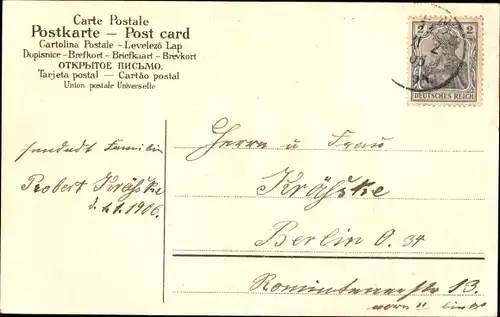 Carte Postale
Postkarte – Post card
Cartolina Postale – Levelező Lap
Dopisnice – Brefkort – Briefkaart – Brevkort
ОТКРЫТОЕ ПИСЬМО.
Tarjeta postal – Cartão postal
Union postale Universelle
2 2
DEUTSCHES REICH
sendet Familie
Robert Krähske
d. 1.1.1906.
Herrn u Frau
Krähske
Berlin O. 34
Romintenerstr 13.
vorn II links